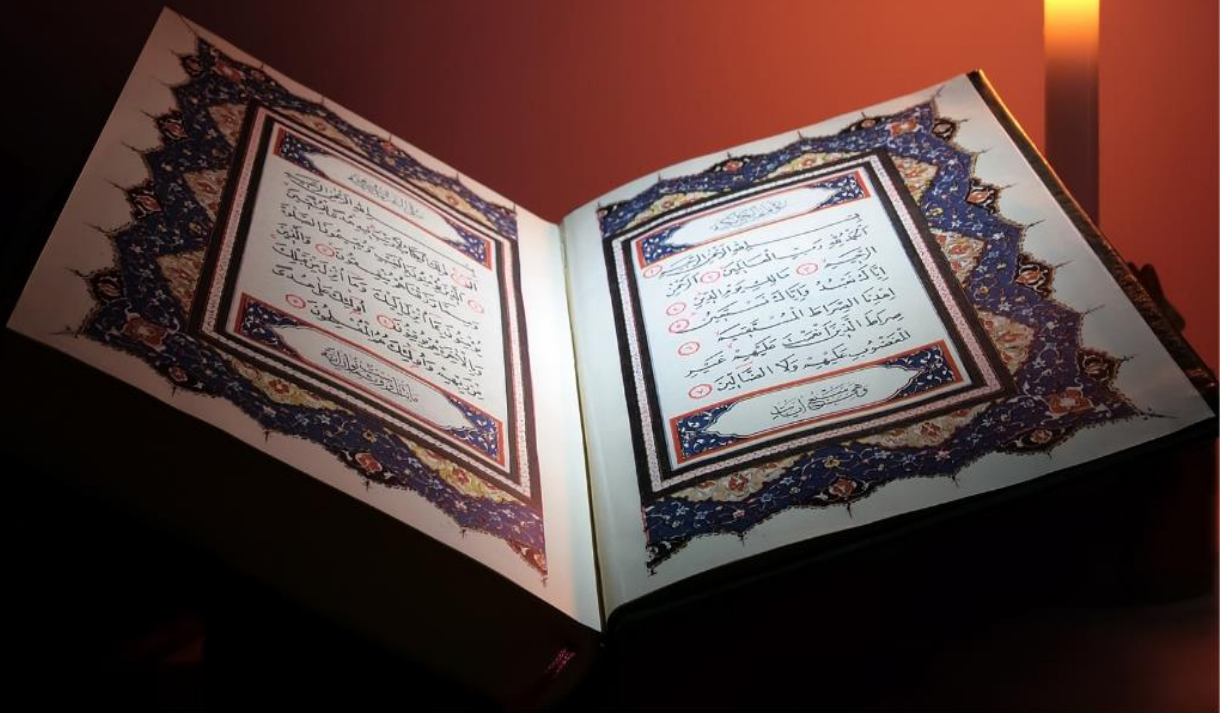 سُورَةُ الْفَاتِحَةِ
بِسْمِ اللهِ الرَّحْمٰنِ الرَّحِيمِ ١
اَلْحَمْدُ لِلهِ رَبِّ الْعَالَمِينَ ٢ اَلرَّحْمٰنِ
الرَّحِيمِ ٣ مَالِكِ يَوْمِ الدِّينِ ٤
اِيَّاكَ نَعْبُدُ وَاِيَّاكَ نَسْتَعِينُ ٥
اِهْدِنَا الصِّرَاطَ الْمُسْتَقِيمَ ٦
صِرَاطَ الَّذِينَ اَنْعَمْتَ عَلَيْهِمْ غَيْرِ
الْمَغْضُوبِ عَلَيْهِمْ وَلَا الضَّالِّينَ ٧
وَهِيَ سَبْعُ آيَاتٍ
بِسْمِ اللهِ الرَّحْمٰنِ الرَّحِيمِ
الٓمٓ ١ ذٰلِكَ الْكِتَابُ لَا رَيْبَ فِيهِ هُدًى لِلْمُتَّقِينَ
٢ اَلَّذِينَ يُؤْمِنُونَ بِالْغَيْبِ وَيُقِيمُونَ الصَّلٰوةَ
وَمِمَّا رَزَقْنَاهُمْ يُنْفِقُونَ ٣ وَالَّذِينَ
يُؤْمِنُونَ بِمَا اُنْزِلَ اِلَيْكَ وَمَا اُنْزِلَ مِنْ قَبْلِكَ
وَبِالْاٰخِرَةِ هُمْ يُوقِنُونَ ٤ اُولٰئِكَ عَلٰى هُدًى
مِنْ رَبِّهِمْ وَاُولٰئِكَ هُمُ الْمُفْلِحُونَ ٥